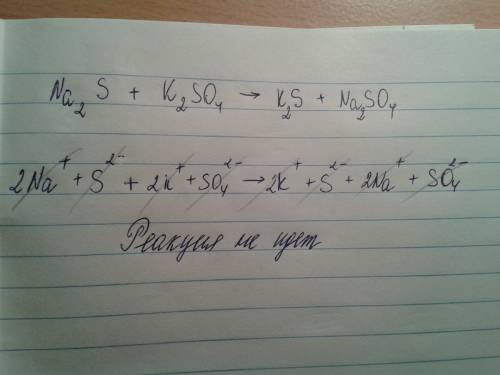 Na₂S + K₂SO₄ → K₂S + Na₂SO₄
2Na⁺ + S²⁻ + 2K⁺ + SO₄²⁻ → 2K⁺ + S²⁻ + 2Na⁺ + SO₄²⁻
Реакция не идет